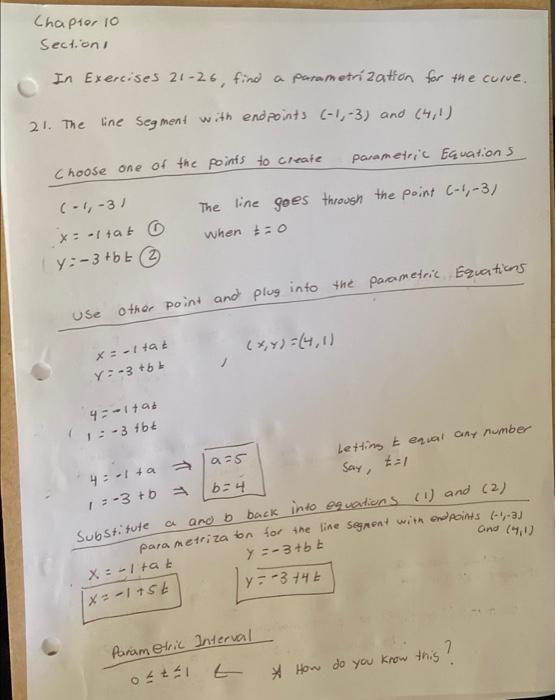 Chapter 10
Section 1
In Exercises 21-26, find a parametrization for the curve.
21. The line segment with endpoints (-1,-3) and (4,1)
Choose one of the points to create parametric Equations
(-1,-3) The line goes through the point (-1,-3)
x = -1+at ① when t=0
y = -3+bt ②
Use other point and plug into the parametric Equations
x = -1+at , (x,y)=(4,1)
y = -3+bt
4 = -1+at
1 = -3+bt
Letting t equal any number
4 = -1+a ⇒ a=5 Say, t=1
1 = -3+b ⇒ b=4
Substitute a and b back into equations (1) and (2)
parametrization for the line segment with endpoints (-1,-3) and (4,1)
x = -1+at y = -3+bt
x = -1+5t y = -3+4t
Parametric Interval
0≤t≤1 ← * How do you know this?